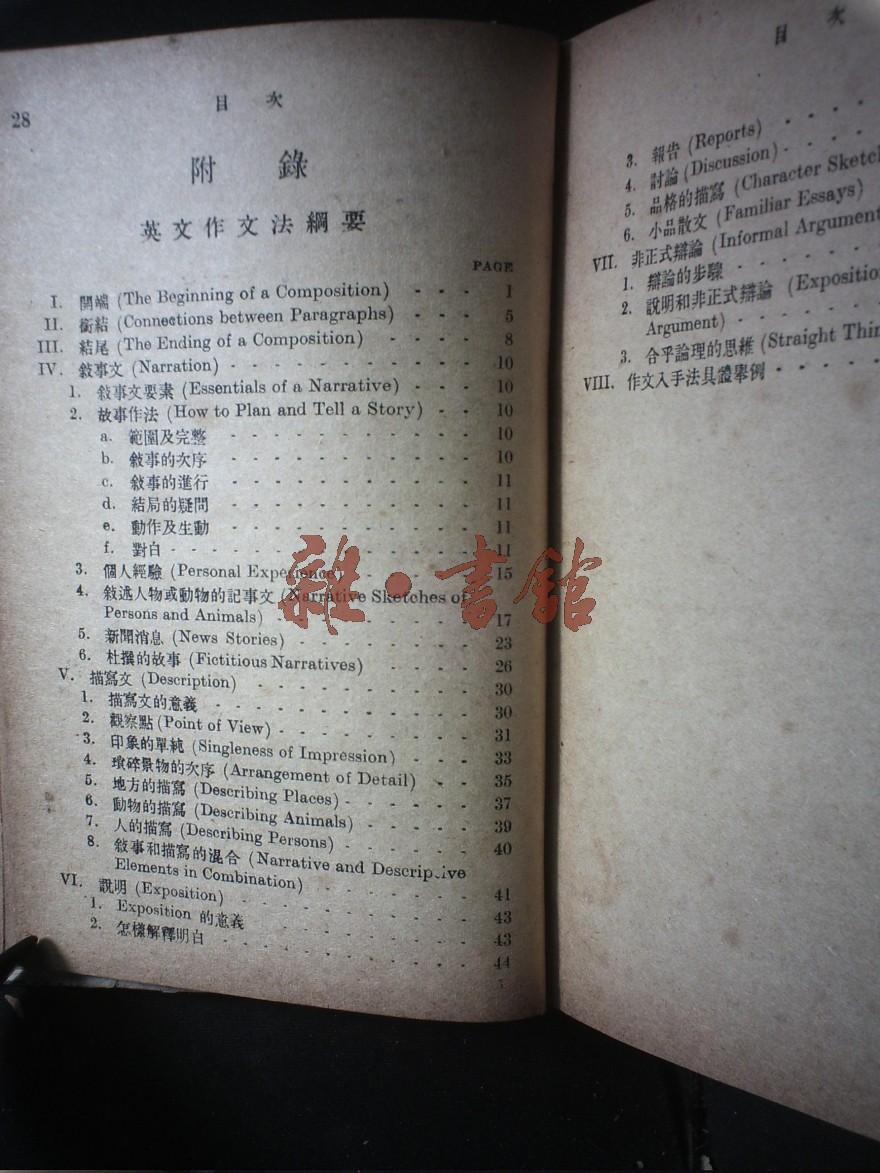 28
目 次
附 錄
英文作文法綱要
PAGE
I. 開端 (The Beginning of a Composition) - - - 1
II. 銜結 (Connections between Paragraphs) - - - 5
III. 結尾 (The Ending of a Composition) - - - - 8
IV. 敘事文 (Narration) - - - - - - - - - 10
1. 敘事文要素 (Essentials of a Narrative) - - - 10
2. 故事作法 (How to Plan and Tell a Story) - - 10
a. 範圍及完整 - - - - - - - - - - 10
b. 敘事的次序 - - - - - - - - - - 10
c. 敘事的進行 - - - - - - - - - - 11
d. 結局的疑問 - - - - - - - - - - 11
e. 動作及生動 - - - - - - - - - - 11
f. 對白 - - - - - - - - - - - - 11
3. 個人經驗 (Personal Experience) - - - - - 15
4. 敘述人物或動物的記事文 (Narrative Sketches of
Persons and Animals) - - - - - - - - 17
5. 新聞消息 (News Stories) - - - - - - - 23
6. 杜撰的故事 (Fictitious Narratives) - - - - 26
V. 描寫文 (Description) - - - - - - - - - 30
1. 描寫文的意義 - - - - - - - - - - 30
2. 觀察點 (Point of View) - - - - - - - - 31
3. 印象的單純 (Singleness of Impression) - - - 33
4. 瑣碎景物的次序 (Arrangement of Detail) - - 35
5. 地方的描寫 (Describing Places) - - - - - 37
6. 動物的描寫 (Describing Animals) - - - - 39
7. 人的描寫 (Describing Persons) - - - - - 40
8. 敘事和描寫的混合 (Narrative and Descriptive
Elements in Combination) - - - - - - 41
VI. 說明 (Exposition) - - - - - - - - - 43
1. Exposition 的意義 - - - - - - - - - 43
2. 怎樣解釋明白 - - - - - - - - - - 44
目 次
3. 報告 (Reports) - - - -
4. 討論 (Discussion) - - - -
5. 品格的描寫 (Character Sketch
6. 小品散文 (Familiar Essays)
VII. 非正式辯論 (Informal Argument
1. 辯論的步驟 - - - - -
2. 說明和非正式辯論 (Exposition
Argument) - - - - -
3. 合乎論理的思維 (Straight Thin
VIII. 作文入手法具體舉例 - - - -
雜·書館